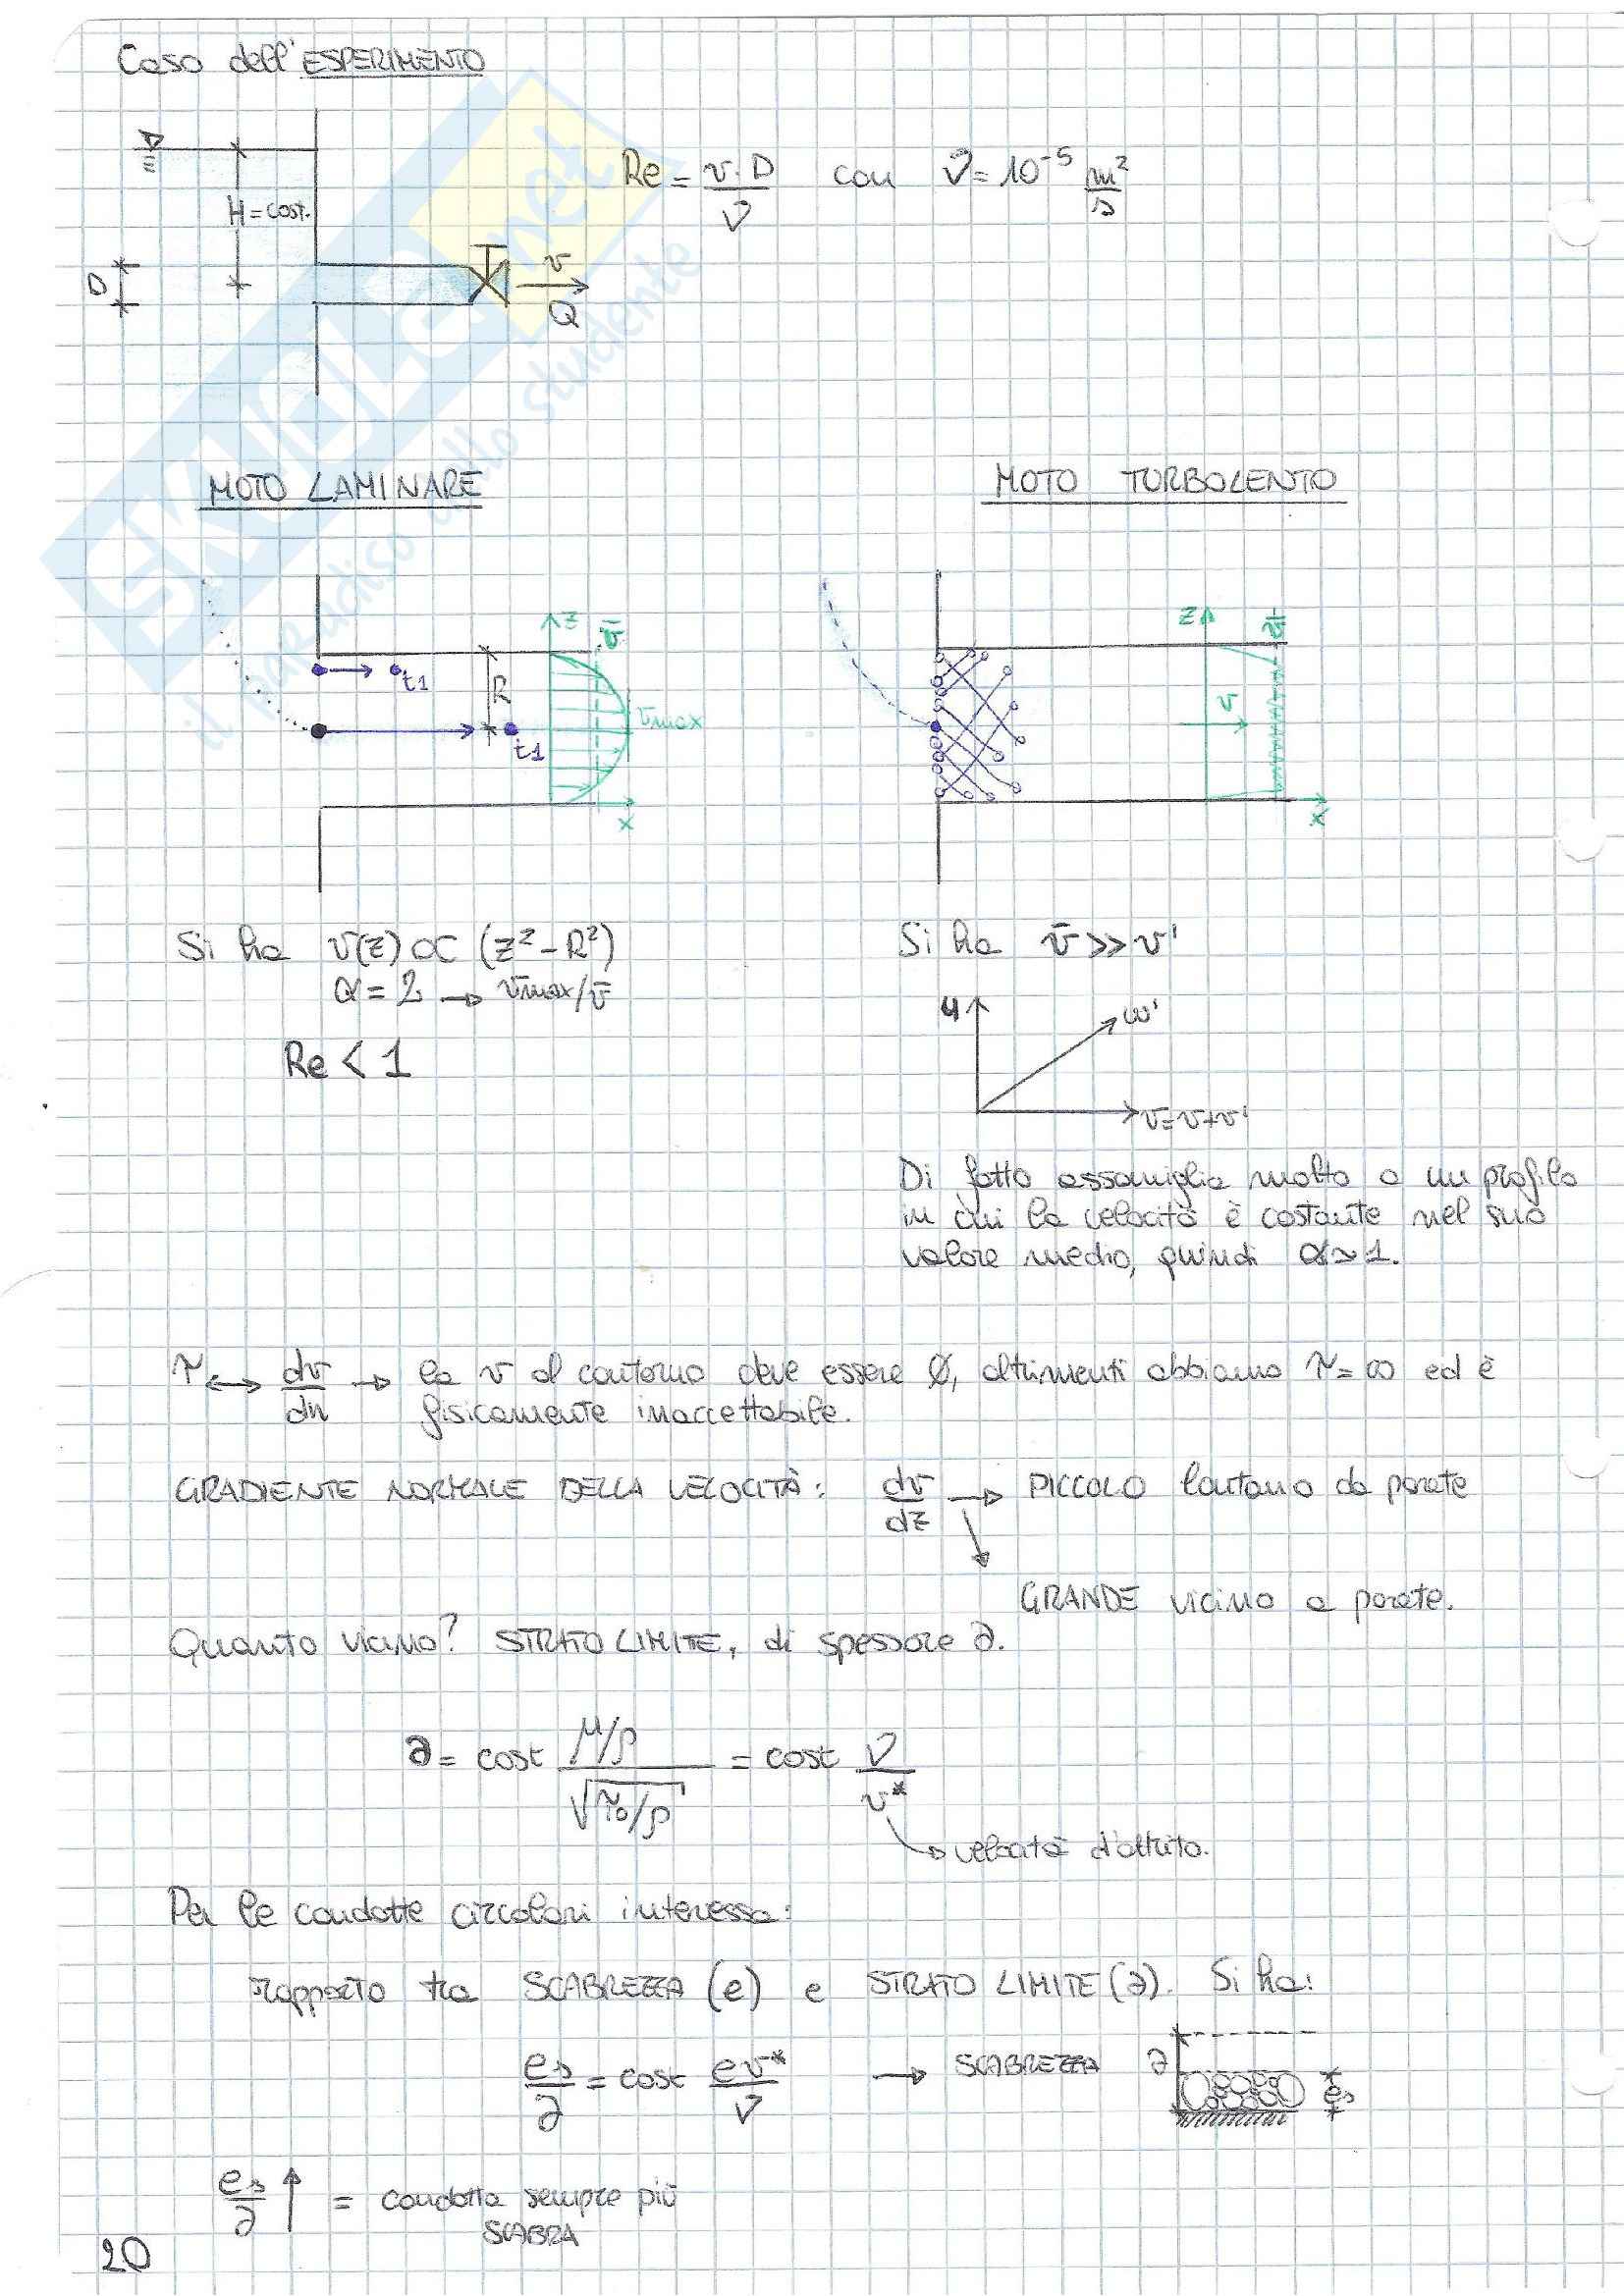 Caso dell'ESPERIMENTO
H=cost.
D
v
Q
Re = v·D/ν con ν = 10⁻⁵ m²/s
SKUOLA.net
il paradiso dello studente
MOTO LAMINARE
MOTO TURBOLENTO
t1
t1
R
z
v̄
vmax
x
z
v̄
v
x
Si ha v(z) ∝ (z² - R²)
α = 2 → vmax/v̄
Re < 1
Si ha v̄ >> v'
u
w'
v=v+v'
Di fatto assomiglia molto a un profilo
in cui la velocità è costante nel suo
valore medio, quindi α≃1.
τ ↔ dv/dn → la v al contorno deve essere ∅, altrimenti abbiamo τ=∞ ed è
fisicamente inaccettabile.
GRADIENTE NORMALE DELLA VELOCITÀ: dv/dz → PICCOLO lontano da parete
GRANDE vicino a parete.
Quanto vicino? STRATO LIMITE, di spessore ∂.
∂ = cost (μ/ρ)/√(τ₀/ρ) = cost ν/v*
velocità d'attrito.
Per le condotte circolari interessa:
rapporto tra SCABREZZA (e) e STRATO LIMITE (∂). Si ha:
es/∂ = cost ev*/ν → SCABREZZA
∂
es
es/∂ ↑ = condotta sempre più
SCABRA
20